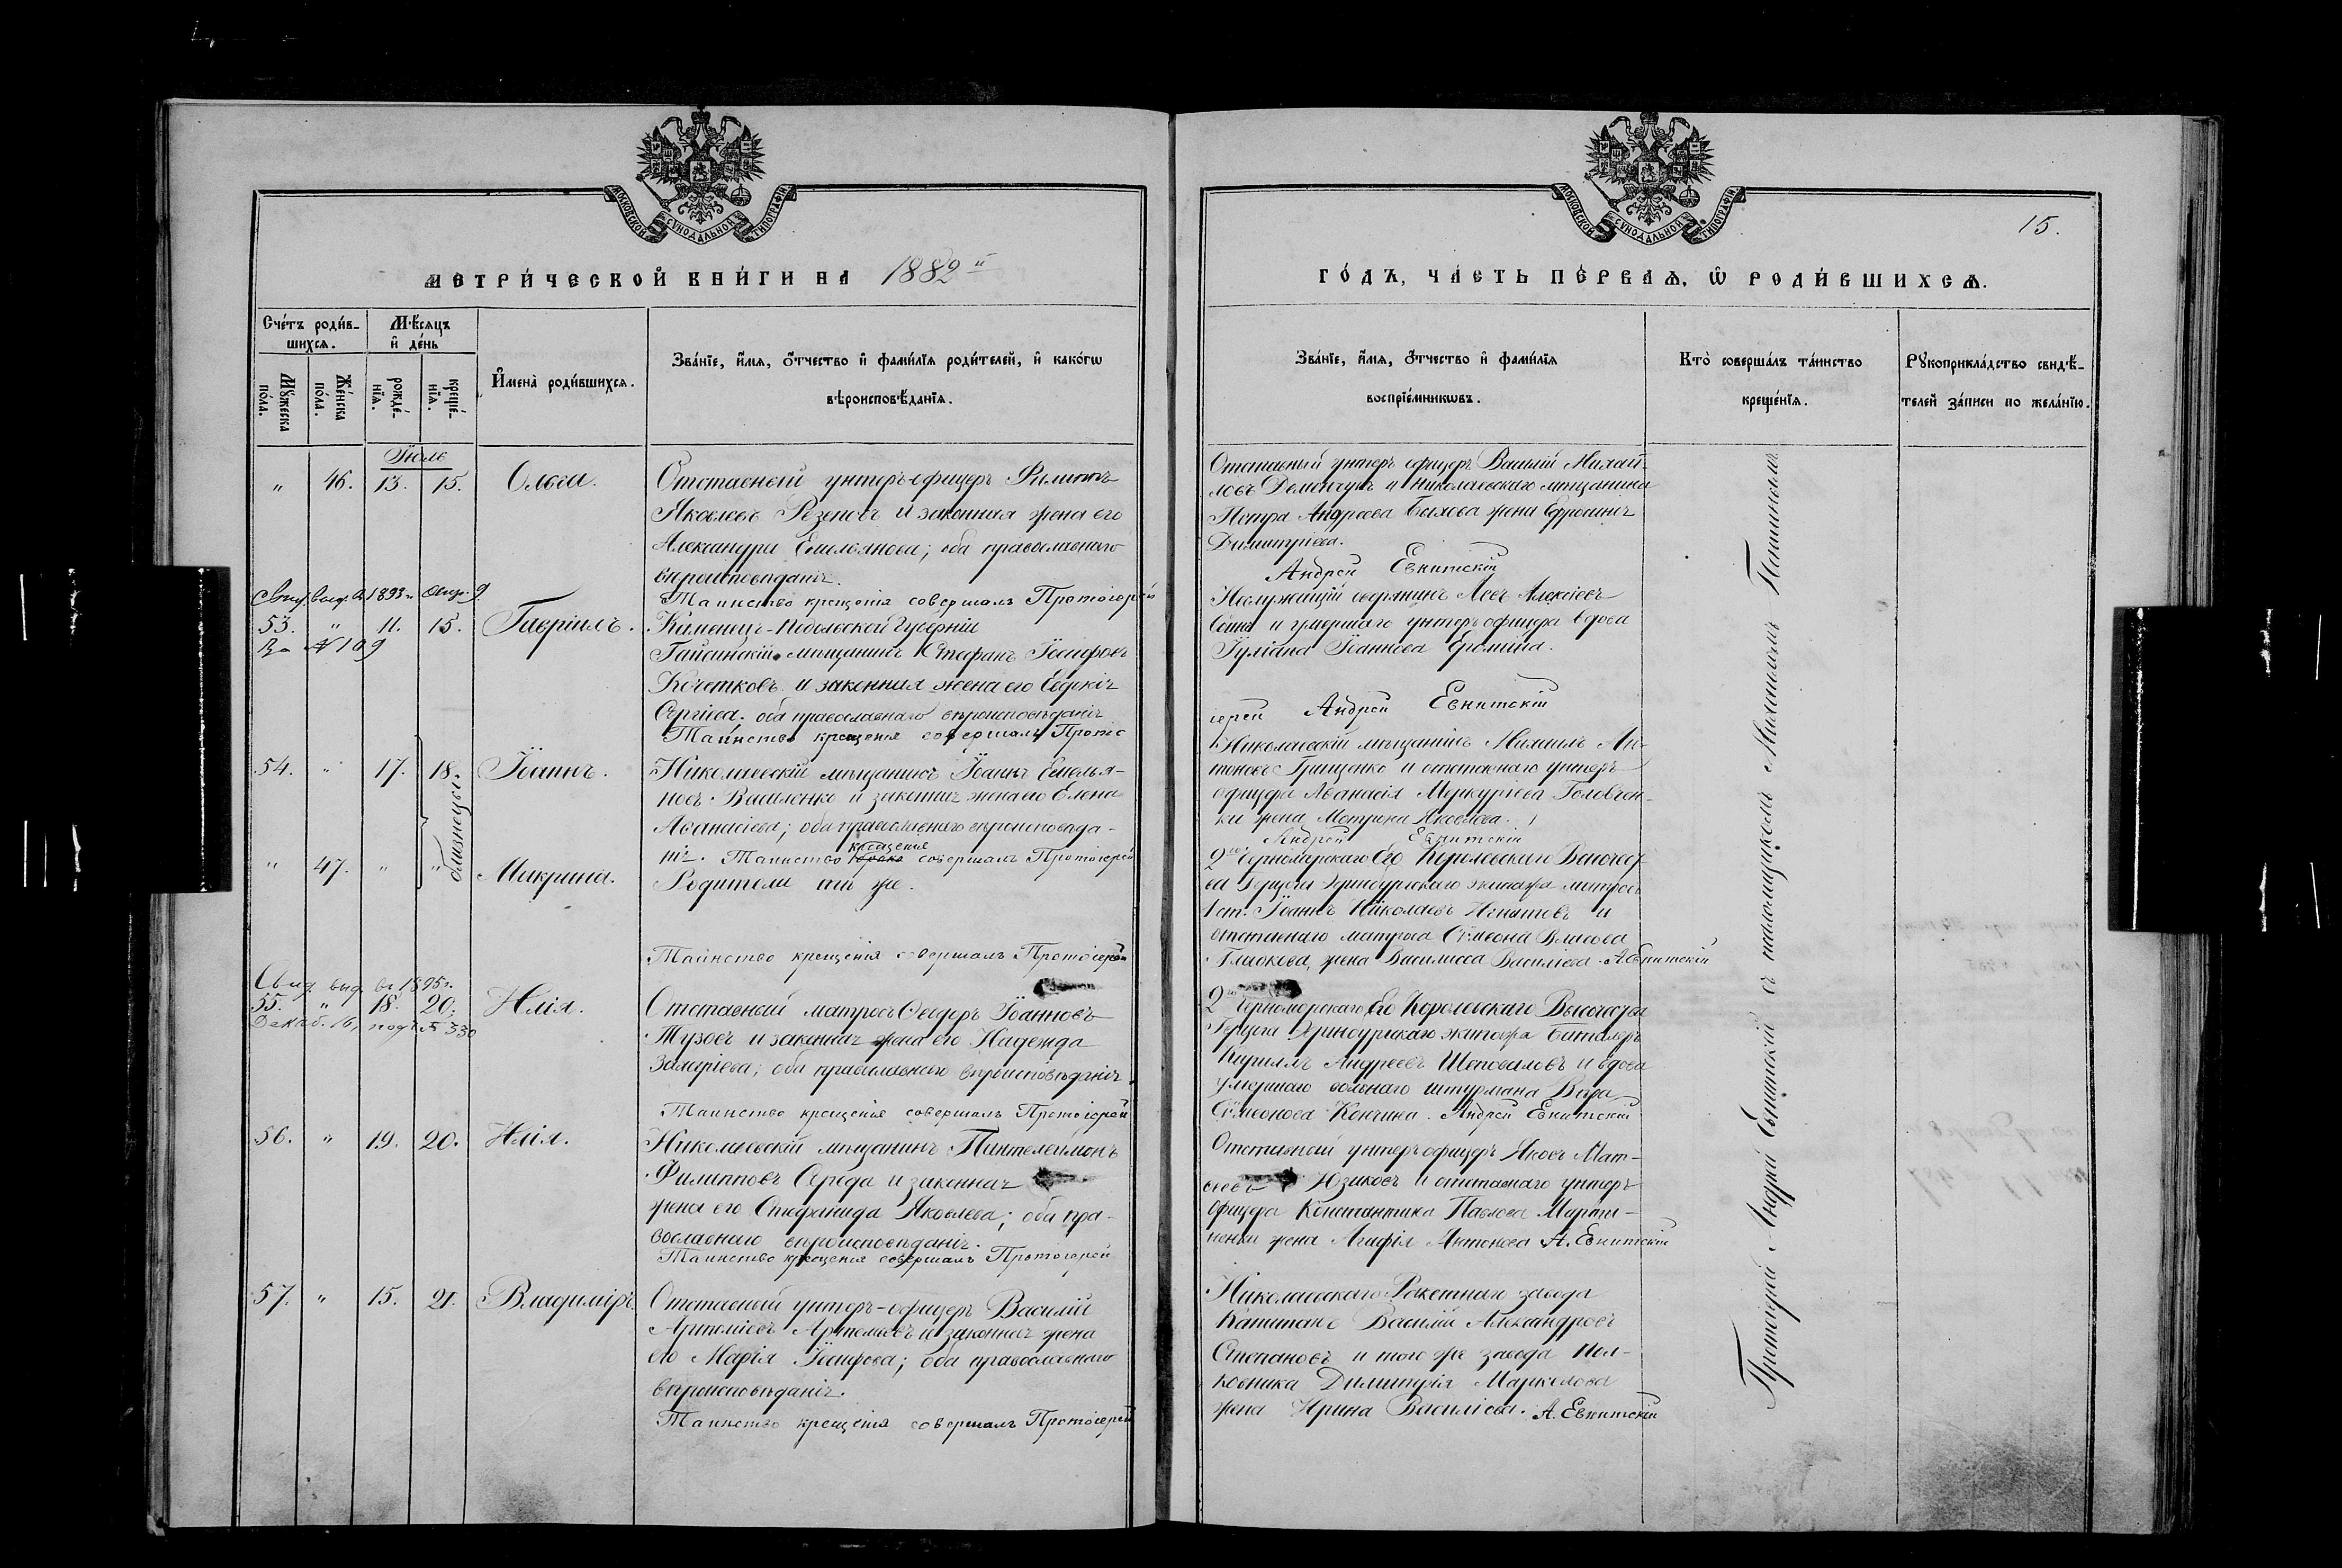 МОСКОВСКОЙ СѴНОДАЛЬНОЙ ТИПОГРАФІИ
МЕТРИ́ЧЕСКОЙ КНИ́ГИ НА 1882й
Сче́тъ роди́в-
шихсѧ.
Мѣ́сяцъ
и҆ де́нь
Мꙋ́жеска
по́ла.
Же́нска
по́ла.
рожде́-
нїѧ.
креще́-
нїѧ.
И҆мена̀ роди́вшихсѧ.
Зва́нїе, и҆́мѧ, ѻ҆́тчество и҆ фами́лїѧ роди́телей, и҆ како́гѡ
вѣроисповѣ́данїѧ.
Іюль
" 46. 13. 15. Ольга.
Отставный унтеръ-офицеръ Филиппъ
Яковлевъ Резеновъ и законная жена его
Александра Емильянова; оба православнаго
вѣроисповѣданія.
Таинство крещенія совершалъ Протоіерей
Свид. выд. въ 1893 г. 9
53. " 11. 15. Гавріилъ.
За № 109
Каменец-Подольской Губерніи
Гайсинскій мѣщанинъ Стефанъ Іосифовъ
Кочетковъ и законная жена его Евдокія
Сергіева. оба православнаго вѣроисповѣданія
Таинство крещенія совершалъ Протоі
54. " 17. 18. Іоаннъ.
близнецы
Николаевскій мѣщанинъ Іоаннъ Емелья-
новъ Василенко и законная жена его Елена
Аѳанасіева; оба православнаго вѣроисповѣда-
нія. Таинство крещенія совершалъ Протоіерей
" 47. " " Макрина.
Родители тѣ же.
Таинство крещенія совершалъ Протоіерей
Свид. выд. въ 1895 г.
55. " 18. 20. Илія.
Декаб. 16, подъ № 330
Отставный матросъ Ѳеодоръ Іоанновъ
Тузовъ и законная жена его Надежда
Захаріева; оба православнаго вѣроисповѣданія
Таинство крещенія совершалъ Протоіерей
56. " 19. 20. Илія.
Николаевскій мѣщанинъ Пантелеймонъ
Филипповъ Середа и законная
жена его Стефанида Яковлева; оба пра-
вославнаго вѣроисповѣданія.
Таинство крещенія совершалъ Протоіерей
57. " 15. 21. Владиміръ
Отставный унтеръ-офицеръ Василій
Артеміевъ Артемьевъ и законная жена
его Марія Іосифова; оба православнаго
вѣроисповѣданія.
Таинство крещенія совершалъ Протоіерей
МОСКОВСКОЙ СѴНОДАЛЬНОЙ ТИПОГРАФІИ
15.
ГО́ДЪ, ЧА́СТЬ ПЕ́РВАѦ, Ѡ҆ РОДИ́ВШИХСѦ.
Зва́нїе, и҆́мѧ, ѻ҆́тчество и҆ фами́лїѧ
воспрїе́мникѡвъ.
Кто̀ соверша́лъ та́инство
креще́нїѧ.
Рꙋкоприкла́дство свидѣ́-
телей за́писи по жела́нїю.
Отставный унтеръ офицеръ Василій Михай-
ловъ Демянчукъ и николаевскаго мѣщанина
Петра Андреева Быхова жена Ефросинія
Димитріева.
Андрей Евнитскій
Неслужащій дворянинъ Левъ Алексіевъ
и умершаго унтеръ офицера вдова
Іуліана Іоаннова Еремина.
іерей Андрей Евнитскій
Николаевскій мѣщанинъ Михаилъ Ан-
тоновъ Грищенко и отставнаго унтеръ
офицера Аѳанасія Меркуріева Головчен-
ки жена Матрона Яковлева.
Андрей Евнитскій
2го Черноморскаго Его Королевскаго Высочест-
ва Герцога Эдинбургскаго экипажа матросъ
1 ст. Іоаннъ Николаевъ Игнатовъ и
отставнаго матроса Сѵмеона Власова
Глиокова, жена Василисса Василіева. А. Евнитскій
2го Черноморскаго Его Королевскаго Высочества
Герцога Эдинбургскаго экипажа Баталеръ
Кириллъ Андреевъ Шаповаловъ и вдова
умершаго вольнаго штурмана Вѣра
Сѵмеонова Кончина. Андрей Евнитскій
Отставный унтеръ офицеръ Яковъ Мат-
ѳеевъ Юзиковъ и отставнаго унтеръ
офицера Константина Павлова Марты-
ненки жена Агафія Антонова А. Евнитскій
Николаевскаго Ракетнаго завода
Капитанъ Василій Александровъ
Степановъ и того же завода Пол-
ковника Димитрія Маркелова
жена Ирина Василіева. А. Евнитскій
Протоіерей Андрей Евнитскій съ псаломщикомъ Михаиломъ